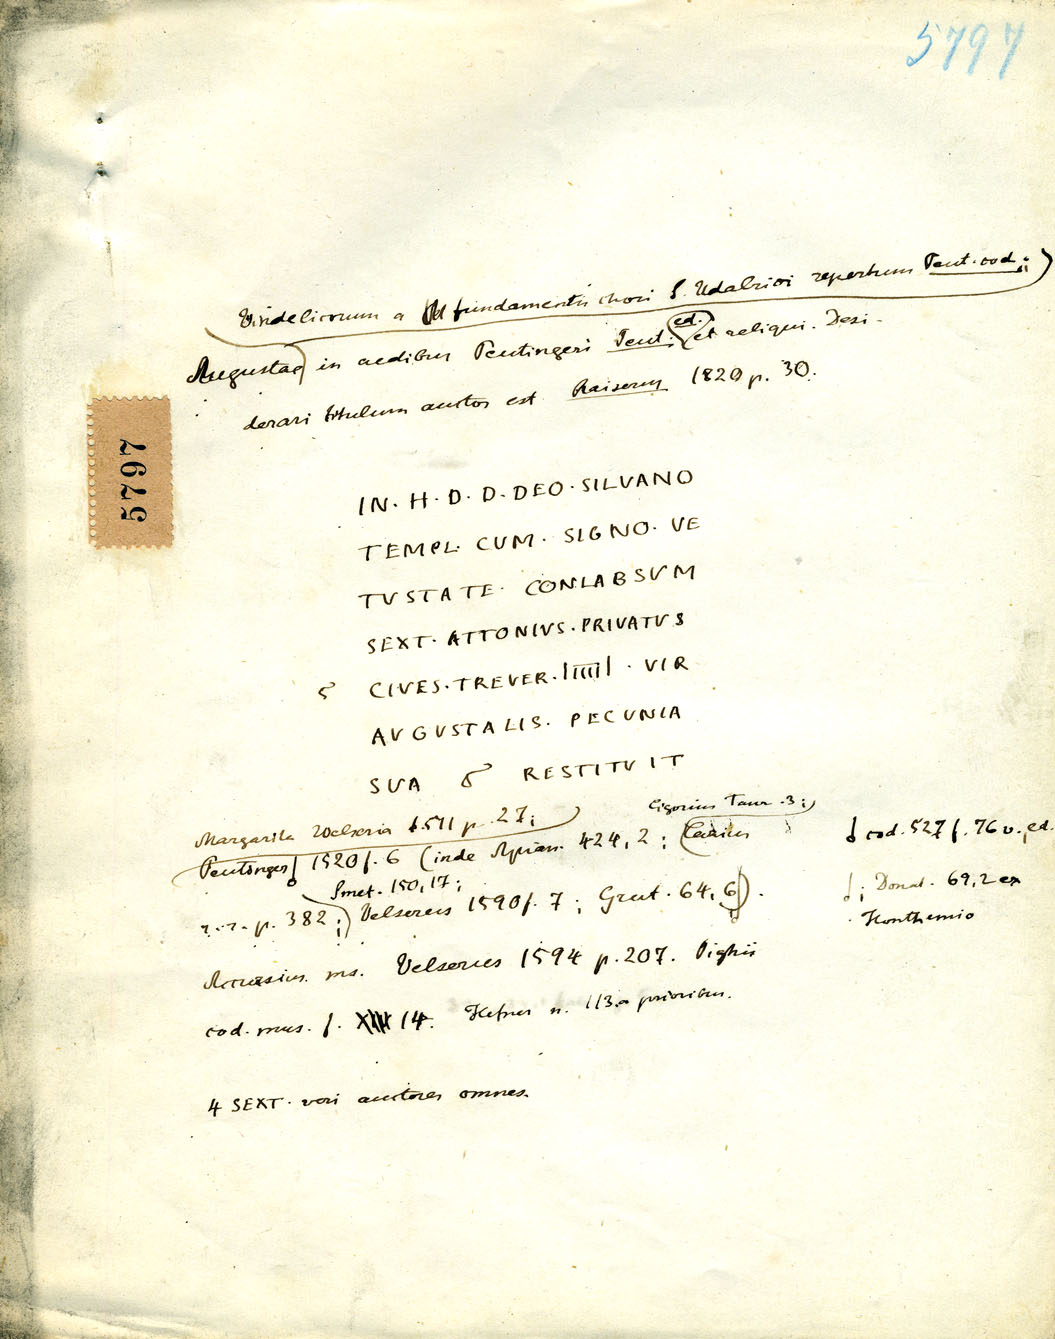 5797
Vindelicorum a fundamentis chori S. Udalrici repertum Peut. cod.;
Augustae in aedibus Peutingeri Peut. ed. et reliqui. Desi-
derari titulum auctor est Raiserus 1820 p. 30.
5797
IN · H · D · D · DEO · SILVANO
TEMPL · CUM · SIGNO · VE
TVSTATE · CONLABSVM
SEXT · ATTONIVS · PRIVATVS
5 CIVES · TREVER · IIIIII · VIR
AVGVSTALIS · PECUNIA
SVA RESTITVIT
Ligorius Taur. 3;
Margarita Velseria 1511 p. 27;
Peutinger 1520 f. 6 (inde Apian. 424, 2;
cod. 527 f. 76 v. ed.
Smet. 150, 17;
p. 382; Velserus 1590 f. 7; Grut. 64, 6).
; Donat. 69, 2 ex
Honthemio
Accursius ms. Velserus 1594 p. 207. Pighii
cod. mus. f. 14. Hefner n. 113 a prioribus.
4 SEXT · veri auctores omnes.